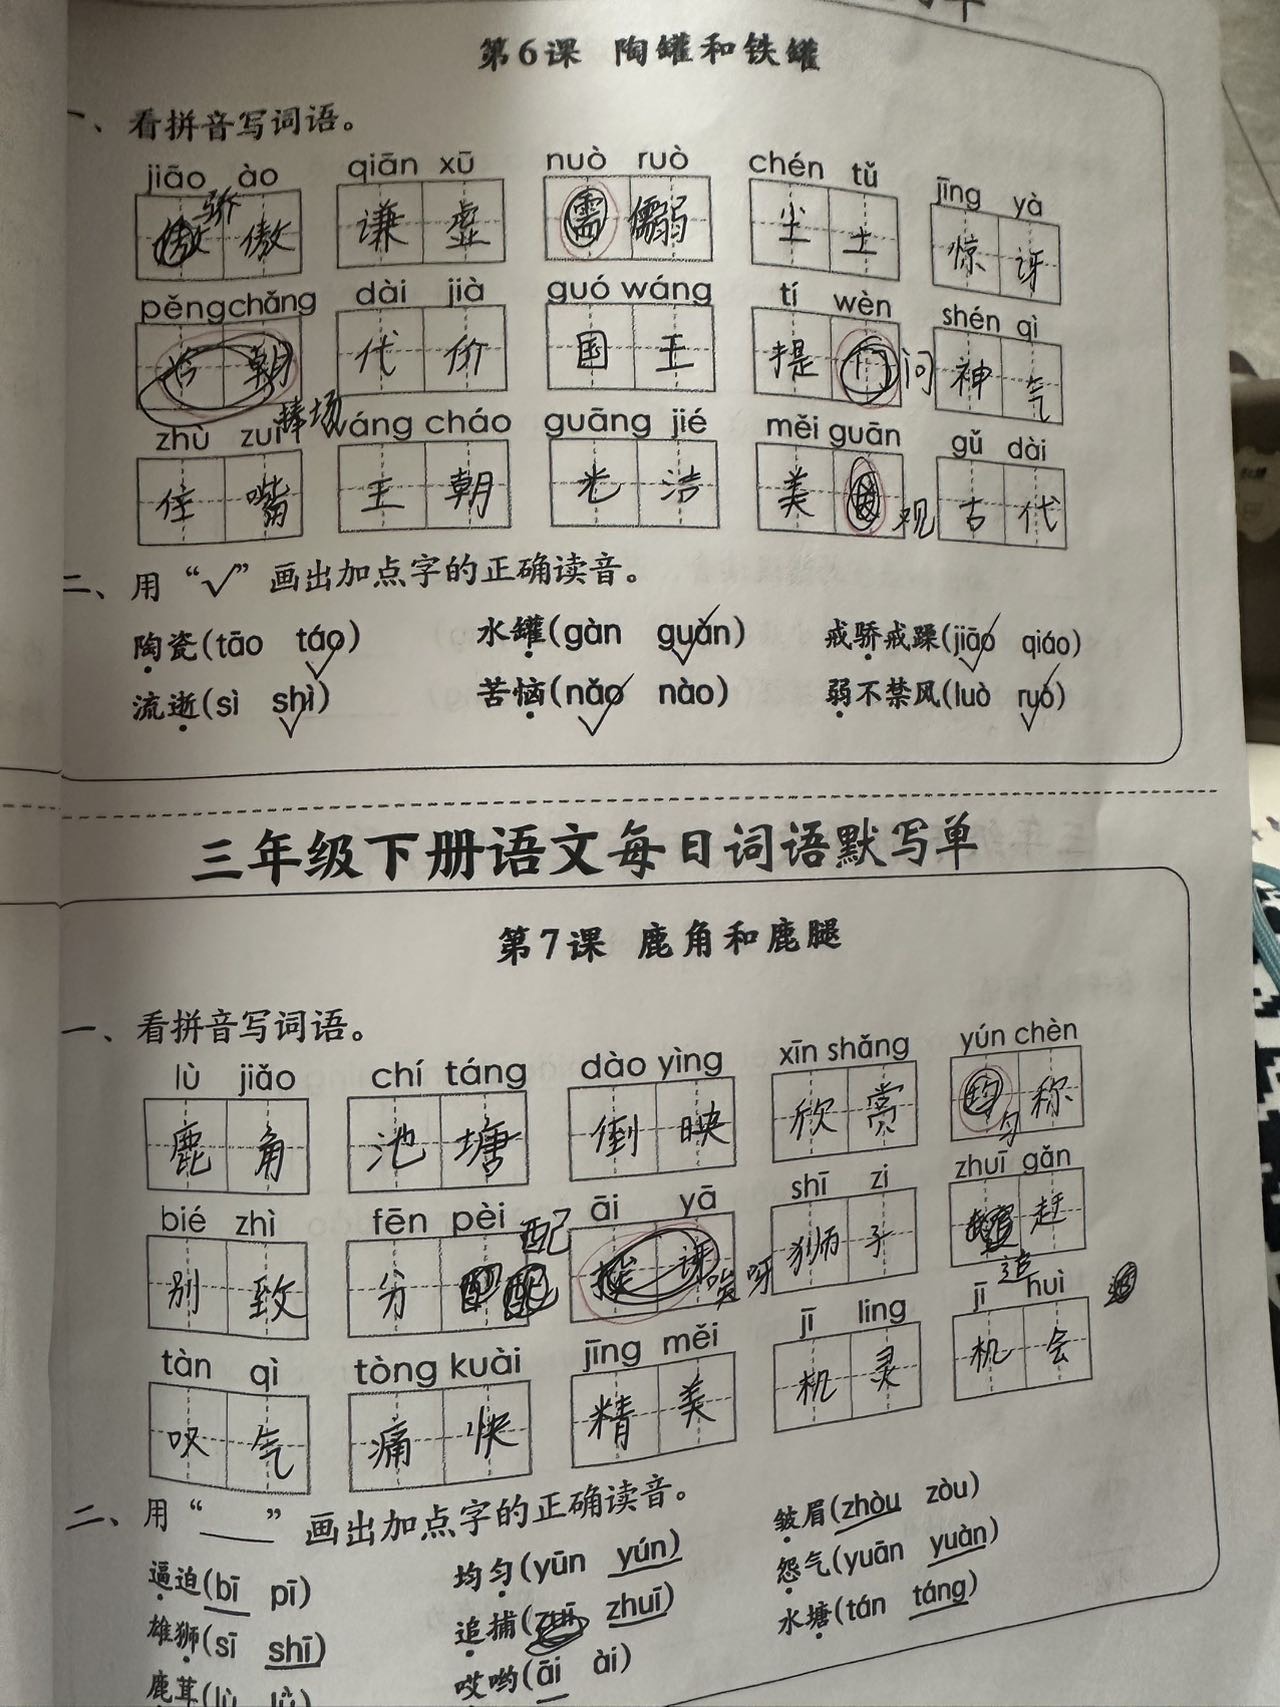 第6课 陶罐和铁罐
一、看拼音写词语。
jiāo ào qiān xū nuò ruò chén tǔ jīng yà
骄 傲 谦 虚 懦 弱 尘 土 惊 讶
pěng chǎng dài jià guó wáng tí wèn shén qì
朝 捧场 代 价 国 王 提 问 神 气
zhù zuǐ wáng cháo guāng jié měi guān gǔ dài
住 嘴 王 朝 光 洁 美 观 古 代
二、用“√”画出加点字的正确读音。
陶瓷(tāo táo) 水罐(gàn guàn) 戒骄戒躁(jiāo qiáo)
流逝(sì shì) 苦恼(nǎo nào) 弱不禁风(luò ruò)
三年级下册语文每日词语默写单
第7课 鹿角和鹿腿
一、看拼音写词语。
lù jiǎo chí táng dào yìng xīn shǎng yún chèn
鹿 角 池 塘 倒 映 欣 赏 匀 称
bié zhì fēn pèi āi yā shī zi zhuī gǎn
别 致 分 配 唉 呀 狮 子 追 赶
tàn qì tòng kuài jīng měi jī ling jī huì
叹 气 痛 快 精 美 机 灵 机 会
二、用“___”画出加点字的正确读音。
逼迫(bī pī) 均匀(yūn yún) 皱眉(zhòu zòu)
雄狮(sī shī) 追捕(zuī zhuī) 怨气(yuān yuàn)
鹿茸(lù lǜ) 哎哟(āi ài) 水塘(tán táng)